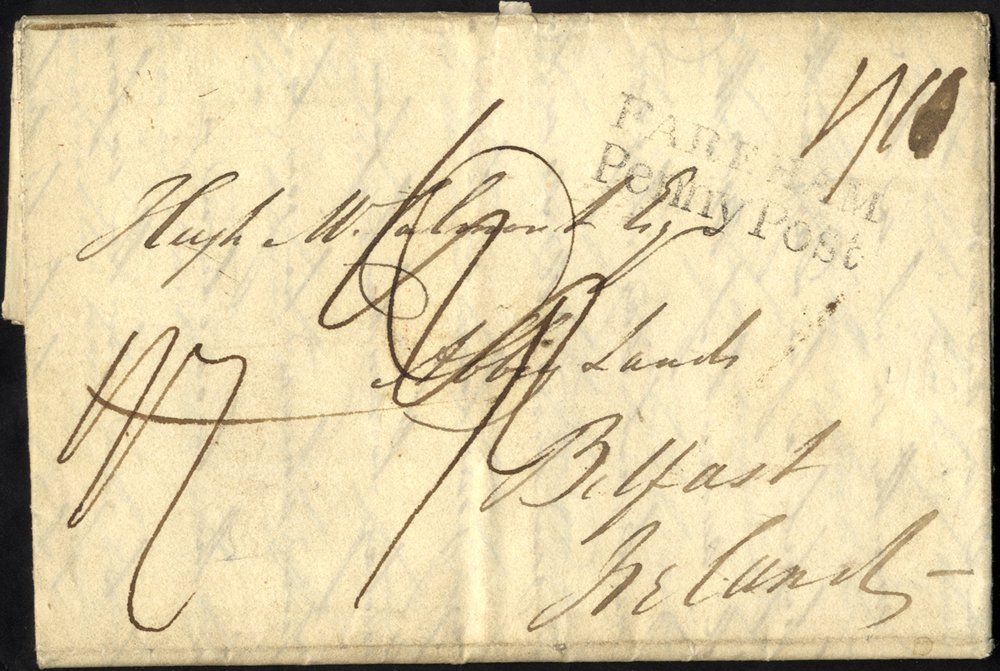 FAREHAM
Penny Post
Hugh Mc Calmont Esqr
Abbey Lands
Belfast
Ireland —